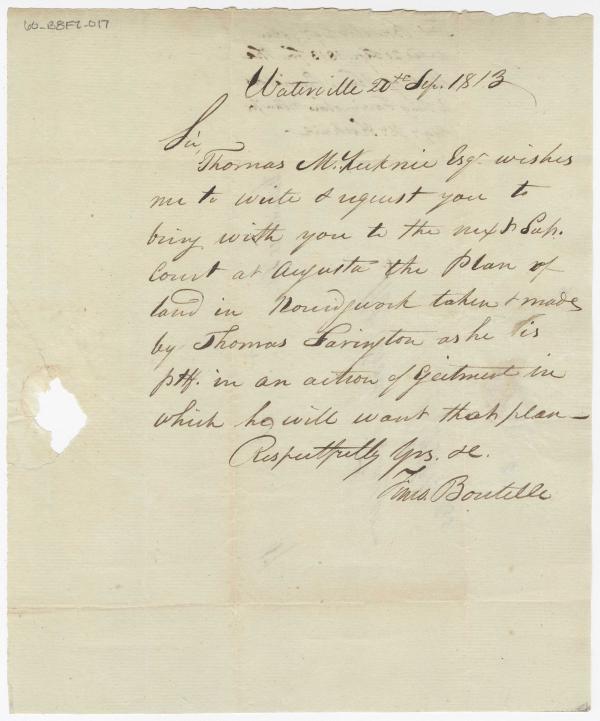 60-B8F2-017
Waterville 20th Sep. 1813
Sir,
Thomas McKecknie Esqr wishes
me to write & request you to
bring with you to the next Sup.
Court at Augusta the Plan of
land in Noridgwock taken & made
by Thomas Farington as he is
ptff. in an action of Ejectment in
which he will want that plan—
Respectfully Yrs. &c.
Timo. Boutelle